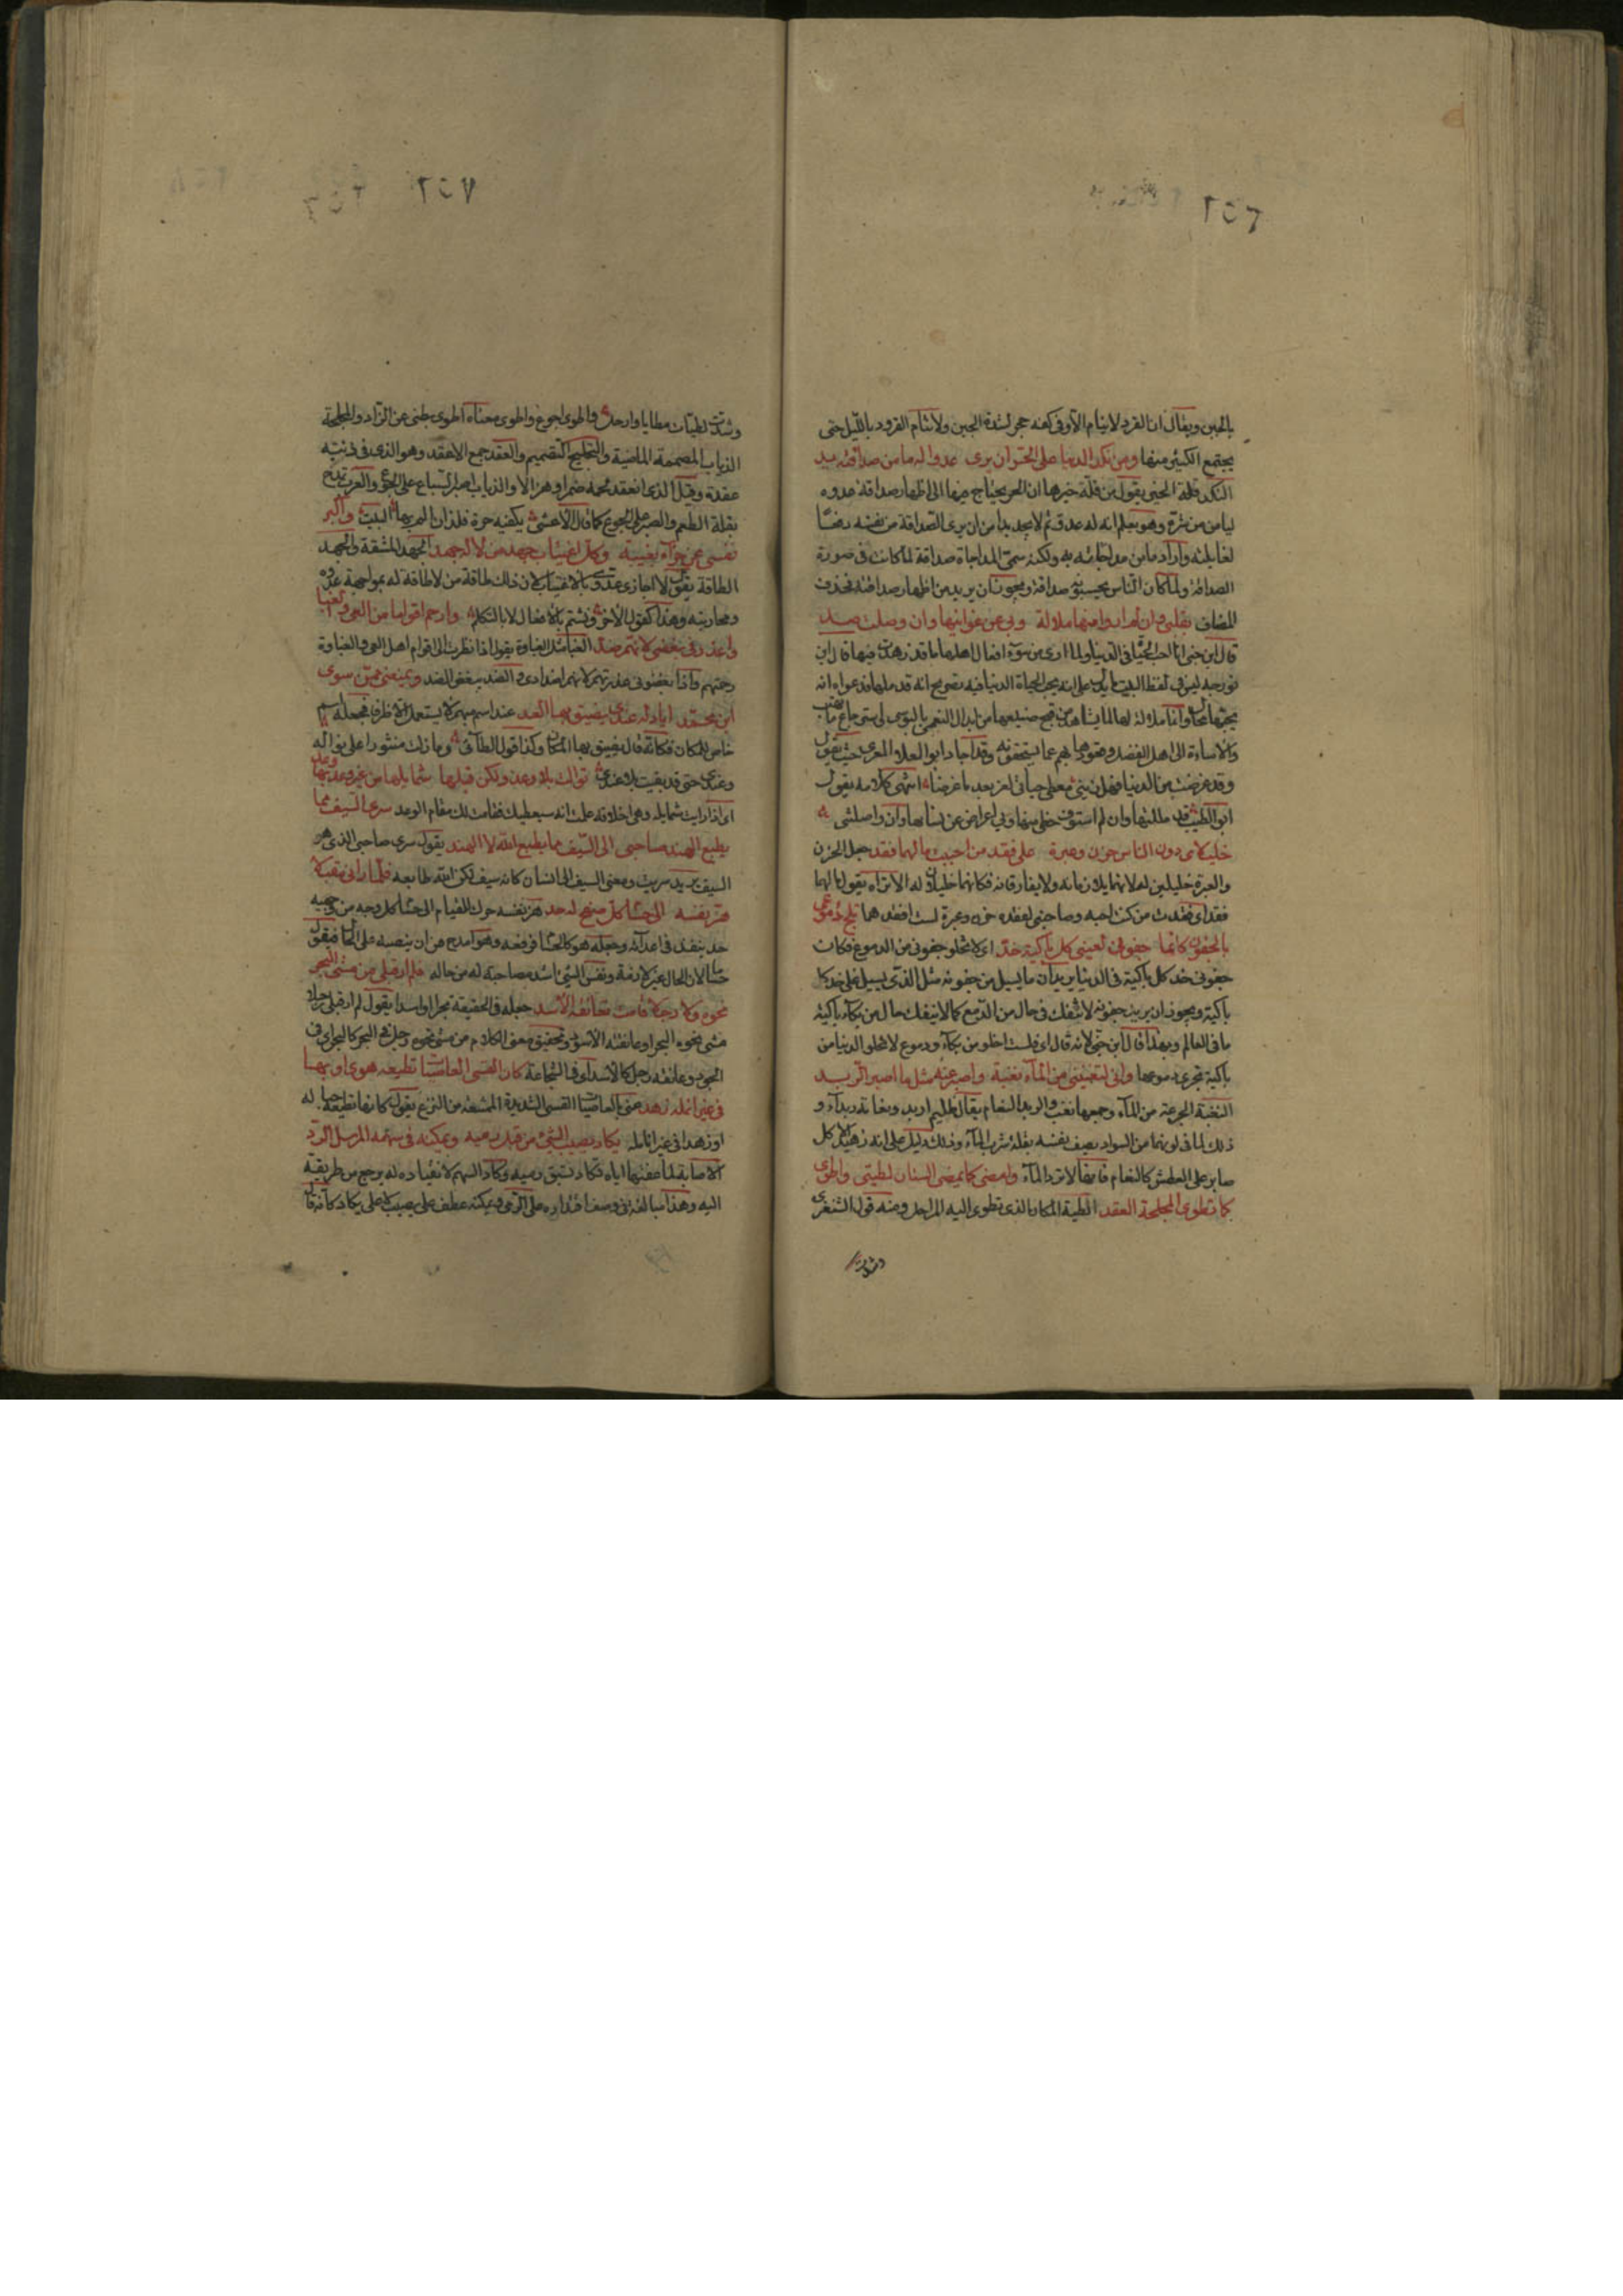 ٢٥٦
بالجبن ويقال ان القرد لا ينام الا وفى كفه حجر لشدة الجبن ولا تنام القرود بالليل حتى
يجتمع الكثير منها ومن نكد الدنيا على الحر ان يرى عدوا له ما من صداقته بد
النكد قلة الخير يقول من قلة خيرها ان الحر يحتاج فيها الى اظهار صداقة عدوه
ليامن من شره وهو يعلم انه له عدو ثم لا يجد بدا من ان يرى الصداقة من نفسه دفعا
لغايلته واراد ما من مداجاته بد ولكنه سمى المداجاة صداقة لما كانت فى صورة
الصداقة ولما كان الناس يحسبونه صداقة ويجوز ان يريد من اظهار صداقته فحذف
المضاف بقلبى وان لم ارو منها ملالة وبى عن غوانيها وان وصلت صد
قال ابن جنى انا احب الحياة فى الدنيا ولما ارى من سوء افعال اهلها ما قد زهدت فيها قال ابن
فورجه ليس فى لفظ البيت ما يدل على انه يحب الحياة الدنيا فيه تصريح انه قد ملها فدعواه انه
يحبها محال وانما ملالة لها لما يشاهد من قبح صنيعها من ابدال النعمى بالبؤسى
والاساءة الى اهل الفضل وقعودها بهم عما يستحقونه وقد اجاد ابو العلاء المعرى حيث يقول
وقد غرضت من الدنيا فهل زمنى معطى حياتى لغر بعد ما غرضا انتهى كلامه يقول
ابو الطيب قد مللتها وان لم استوف حظى منها وبى اعراض عن نسائها وان واصلتنى
خليلاى دون الناس حزن وعبرة على فقد من احببت ما لهما فقد جعل الحزن
والعبرة خليلين له لانهما يلازمانه ولا يفارقانه فكانهما خليلان له الا تراه يقول ما لهما
فقد اى فقدت من كنت احبه وصاحبنى لفقده حزن وعبرة لست افقدهما تلج دموعى
بالجفون كانما جفونى لعينى كل باكية خد اى لا تخلو جفونى من الدموع فكانت
جفونى خد كل باكية فى الدنيا يريد ان ما يسيل من جفونه مثل الذى يسيل على خد كل
باكية ويجوز ان يريد جفونه لا تنفك فى حال من الدمع كما لا تنفك حال من بكاء باكية
ما فى العالم وبهذا قال ابن جنى لانه قال اى فلست اخلو من بكاء ودموع لا تخلو الدنيا من
باكية تجرى دموعها وانى لتغنينى من الماء نغبة واصبر عنه مثل ما اصبر الربد
النغبة الجرعة من الماء وجمعها نغب والربد النعام يقال ظليم اربد ونعامة ربداء و
ذلك لما فى لونهما من السواد يصف نفسه بقلة شرب الماء وذلك دليل على انه زهيد الاكل
صابر على العطش كالنعام فانها لا ترد الماء وامضى كما يمضى السنان لطيتى واطوى
كما تطوى المجلحة العقد الطية المكان الذى تطوى اليه المراحل ومنه قول الشنفرى
وشدت
٢٥٧
وشدت لطيات مطايا وارحل واطوى اجوع واطوى معناه اطوى بطنى عن الزاد والمجلحة
الذياب المصممة الماضية والتجليح التصميم والعقد جمع الاعقد وهو الذى فى ذنبه
عقدة وقيل الذى انعقد لحمه ضمرا وهزالا والذياب اصبر السباع على الجوع والعرب تمدح
بقلة الطعم والصبر على الجوع كما قال الاعشى يكفيه حزة فلذان الم بها البيت واكبر
نفسى عن جزاء بغيبة وكل اغتياب جهد من لا له جهد الجهد المشقة والجهد
الطاقة يقول لا اجازى عدوى بالاغتياب لان ذلك طاقة من لا طاقة له بمواجهة عدوه
ومحاربته وهذا كقول الاخر ونشتم بالافعال لا بالتكلم وارحم اقواما من العى والغبا
واعذر فى بغضى لانهم ضد الغبا مثل الغباوة يقول اذا نظرت الى اقوام اهل العى والغباوة
رحمتهم واذا بغضونى عذرتهم لانهم اضدادى والضد يبغض الضد ويمنعنى ممن سوى
ابن محمد اياد له عندى يضيق بها عند عند اسم مبهم لا يستعمل الا ظرفا فجعله اسم
خاص للمكان فكانه قال يضيق بها المكان وكذا قول الطائى وما زلت منشورا على نواله
وعندى حتى قد بقيت بلا عندى توالى بلا وعد ولكن قبلها شمايله من غير وعد بها وعد
اى اذا رايت شمايله وهى اخلاقه علمت انه سيعطيك فقامت لك مقام الوعد سرى السيف مما
يطبع الهند صاحبى الى السيف مما يطبع الله لا الهند يقول سرى صاحبى الذى هو
السيف يريد سريت ومعى السيف الى انسان كانه سيف لكن الله طابعه فلما رانى مقبلا
هز نفسه الى حسام كل صفح له حد هز نفسه حرك للقيام الى حسام كل وجه من وجهيه
حد ينفذ فى اعدائه وجعله هو كالحسام فرفعه وهو امدح من ان ينصبه على الحال فيقول
حساما لان الحال غير لازمة ونفس الشئ اشد مصاحبة له من حاله فلم ار قبلى من مشى البحر
نحوه ولا رجلا قامت تعانقه الاسد جعله فى الحقيقة بحرا واسدا يقول لم ار قبلى رجلا
مشى نحوه البحر او عانقته الاسود وتحقيق معنى الكلام من مشى نحوه رجل هو البحر كالبحر اى فى
الجود وعانقه رجل كالاسد اى فى الشجاعة كان القسى العاصيات تطيعه هوى او بها
فى غير انمله زهد عنى بالعاصيات القسى الشديدة الممتنعة من النزع يقول كانها تطيعه حبا له
او زهدا فى غير انامله يكاد يصيب الشئ من قبل رميه ويمكنه فى سهمه المرسل الرد
الاصابة لما عنها اياه تكاد تسبق رميه وكاد السهم لانقياده له يرجع من طريقه
اليه وهذا مبالغة فى وصف اقتداره على الرمى ويمكنه عطف على يصيب لا على يكاد كانه قال